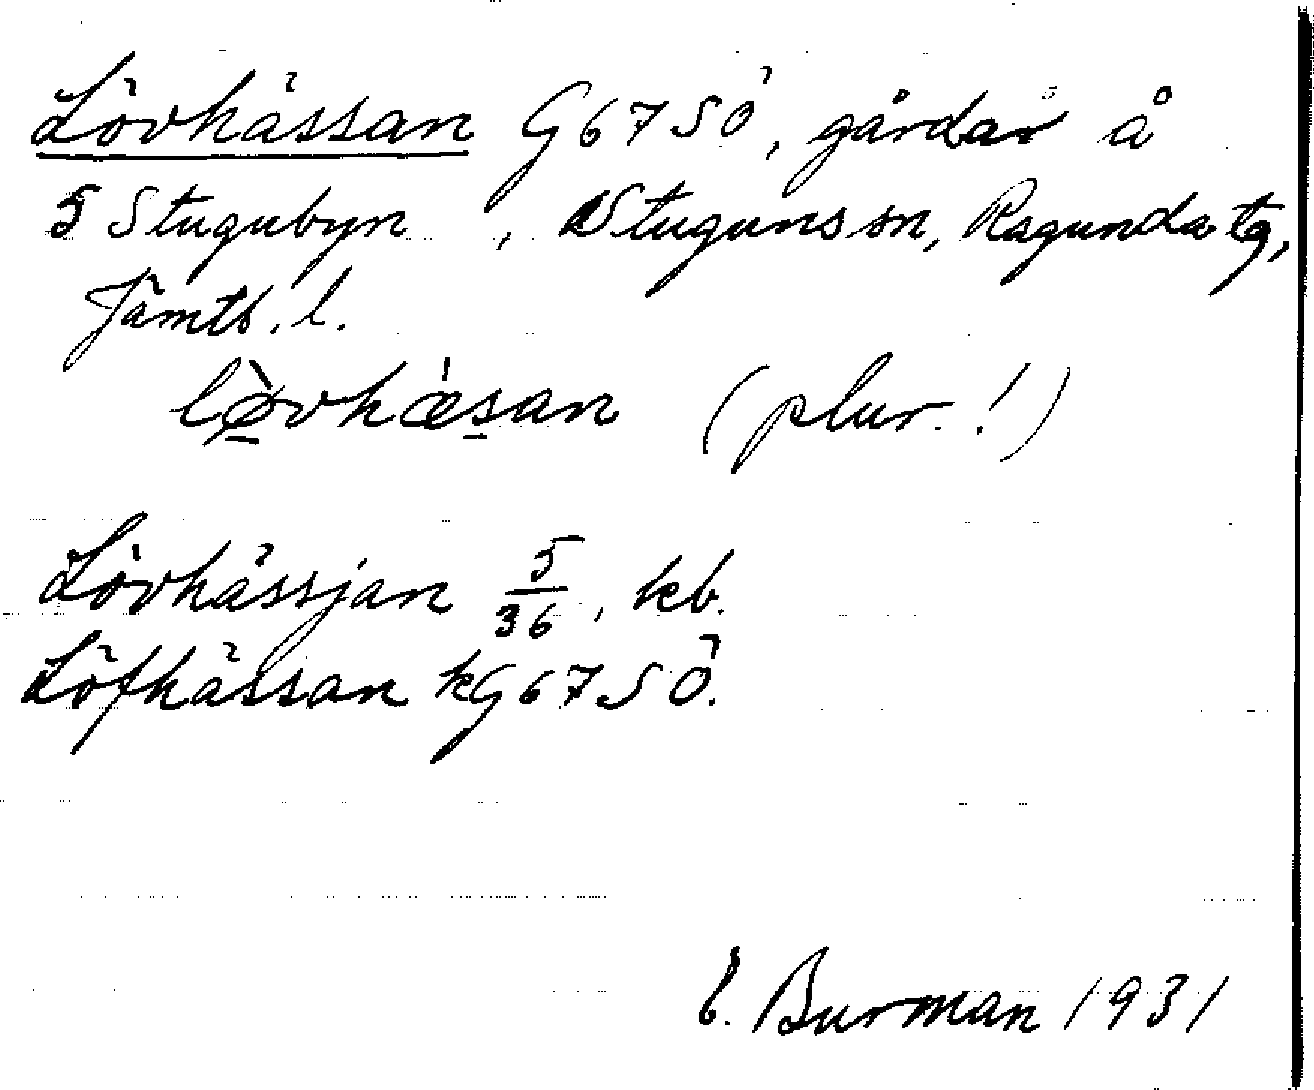 Lövhässan G67SÖ, gårdar å
5 Stugubyn, Stuguns sn, Ragunda tg,
Jämtl. l.
lø̀vhǽsan (plur.!)
Lövhässjan 5/36, kb.
Löfhässan kG67SÖ.
E. Burman 1931